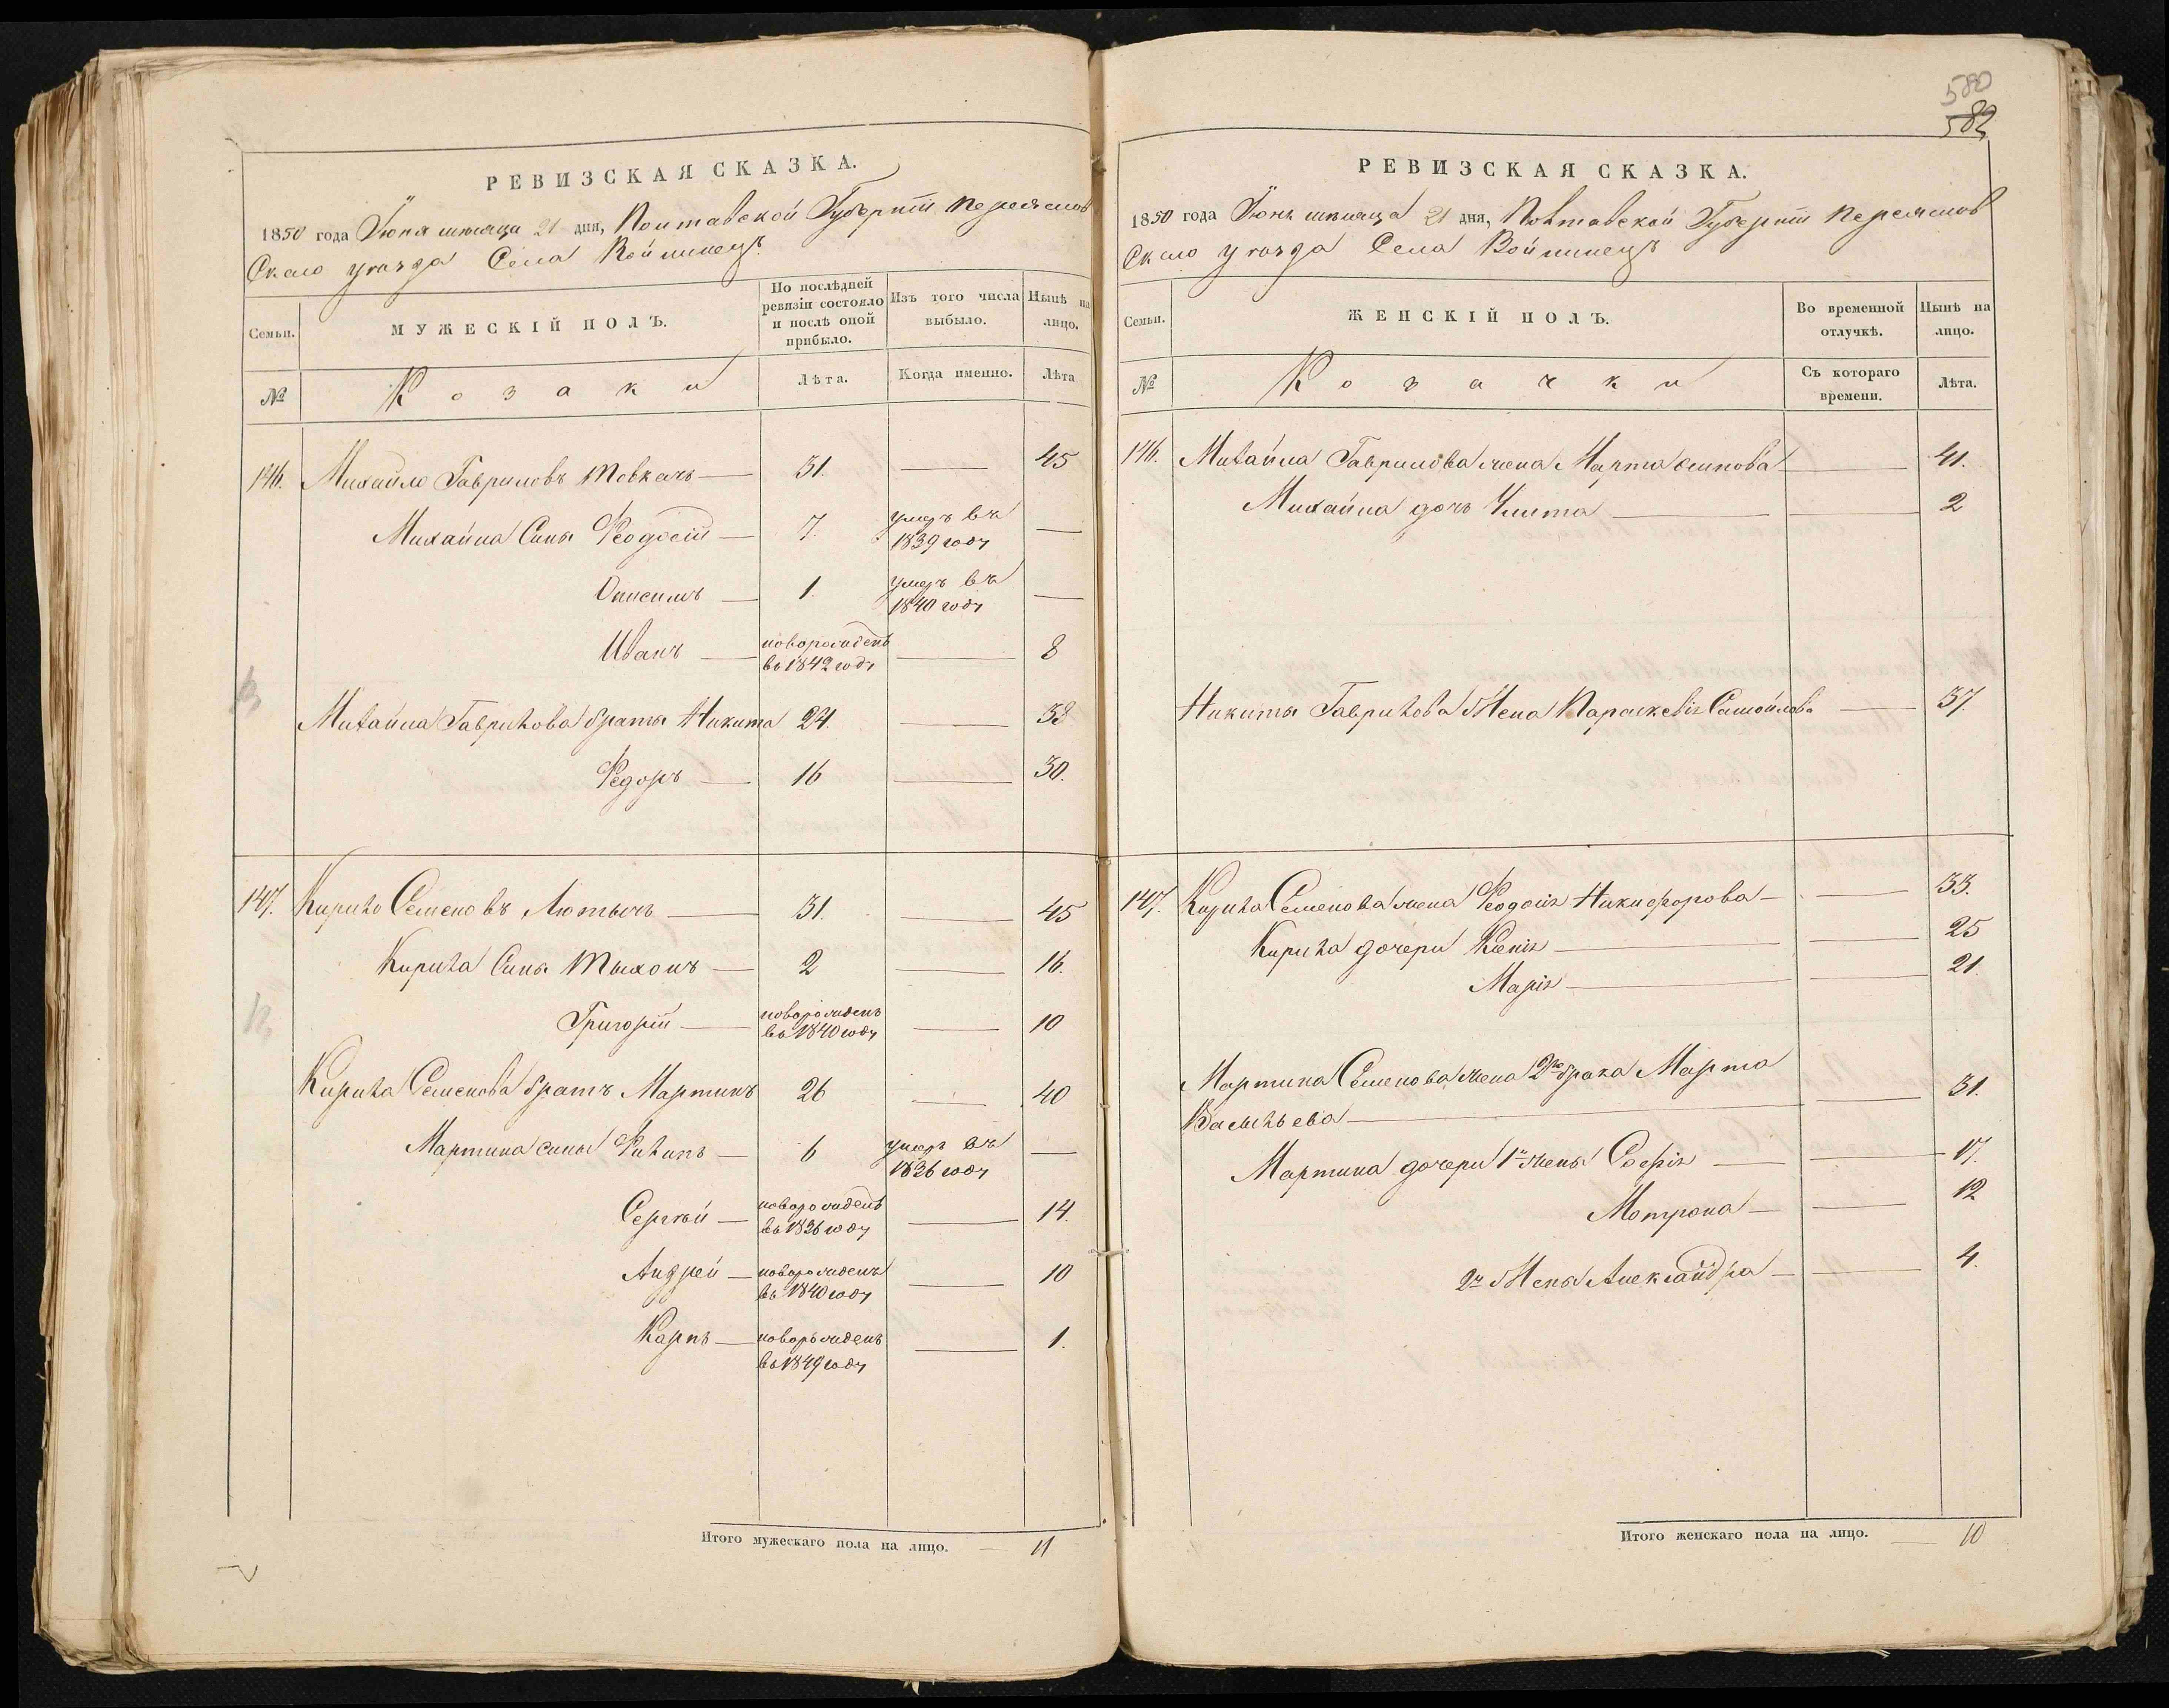 РЕВИЗСКАЯ СКАЗКА.
1850 года Июня месяца 21 дня, Полтавской Губернии Переяслов
Скаго уезда Села Войтинецъ
Семьи.
МУЖЕСКІЙ ПОЛЪ.
По послѣдней ревизіи состояло и послѣ оной прибыло.
Изъ того числа выбыло.
Нынѣ на лицо.
№
Козаки
Лѣта.
Когда именно.
Лѣта
146. Михайло Гавриловъ Товкачъ — 31. — 45
Михайла Сины Феодосій — 7. умеръ въ 1839 году —
Онисимъ — 1. умеръ въ 1840 году —
Иванъ — новорожденъ въ 1842 году — 8
Михайла Гаврилова браты Никита 24. — 38
Федоръ — 16 — 30.
147. Кирило Семеновъ Лютычъ — 31. — 45
Кирила Сины Тыхонъ — 2 — 16.
Григорій — новорожденъ въ 1840 году — 10
Кирила Семенова братъ Мартинъ 26 — 40
Мартина сины Филипъ — 6 умеръ въ 1836 году —
Сергѣй — новорожденъ въ 1836 году — 14.
Андрей — новорожденъ въ 1840 году — 10
Карпъ — новорожденъ въ 1849 году — 1.
Итого мужескаго пола на лицо. — 11
580
582
РЕВИЗСКАЯ СКАЗКА.
1850 года Июня месяца 21 дня, Полтавской Губернии Переяслов
Скаго уезда Села Войтинецъ
Семьи.
ЖЕНСКІЙ ПОЛЪ.
Во временной отлучкѣ.
Нынѣ на лицо.
№
Козачки
Съ котораго времени.
Лѣта.
146. Михайла Гаврилова жена Марта — 41.
Михайла дочь — 2
Никиты Гаврилова Жена Параскевія Самойлова — 37.
147. Кирила Семенова жена Феодосія Никифорова — 33.
Кирила дочери Ксенія — 25
Марія — 21.
Мартина Семенова жена 2го брака Марта
Васильева — 31.
Мартина дочери 1й жены Софія — 17.
Мотрона — 12
2й Жены Александра — 4.
Итого женскаго пола на лицо. — 10